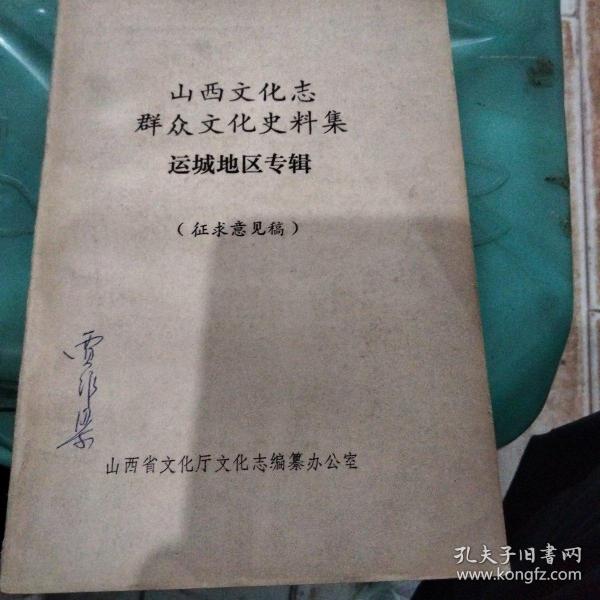 山西文化志
群众文化史料集
运城地区专辑
（征求意见稿）
山西省文化厅文化志编纂办公室
孔夫子旧书网
www.kongfz.com